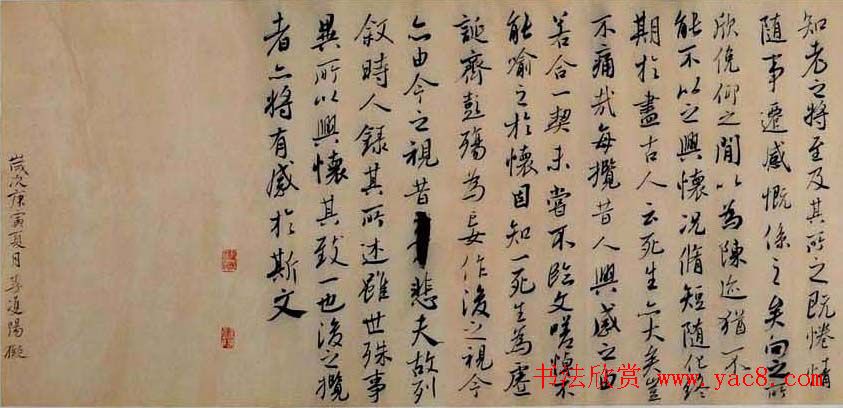 知老之将至及其所之既惓情
随事遷感慨係之矣向之所
欣俛仰之閒以為陳迹猶不
能不以之興懷況脩短随化終
期於盡古人云死生亦大矣豈
不痛哉每攬昔人興感之由
若合一契未嘗不臨文嗟悼不
能喻之於懷固知一死生為虛
誕齊彭殤為妄作後之視今
亦由今之視昔悲夫故列
叙時人錄其所述雖世殊事
異所以興懷其致一也後之攬
者亦將有感於斯文
歲次庚寅夏月
书法欣赏 www.yac8.com